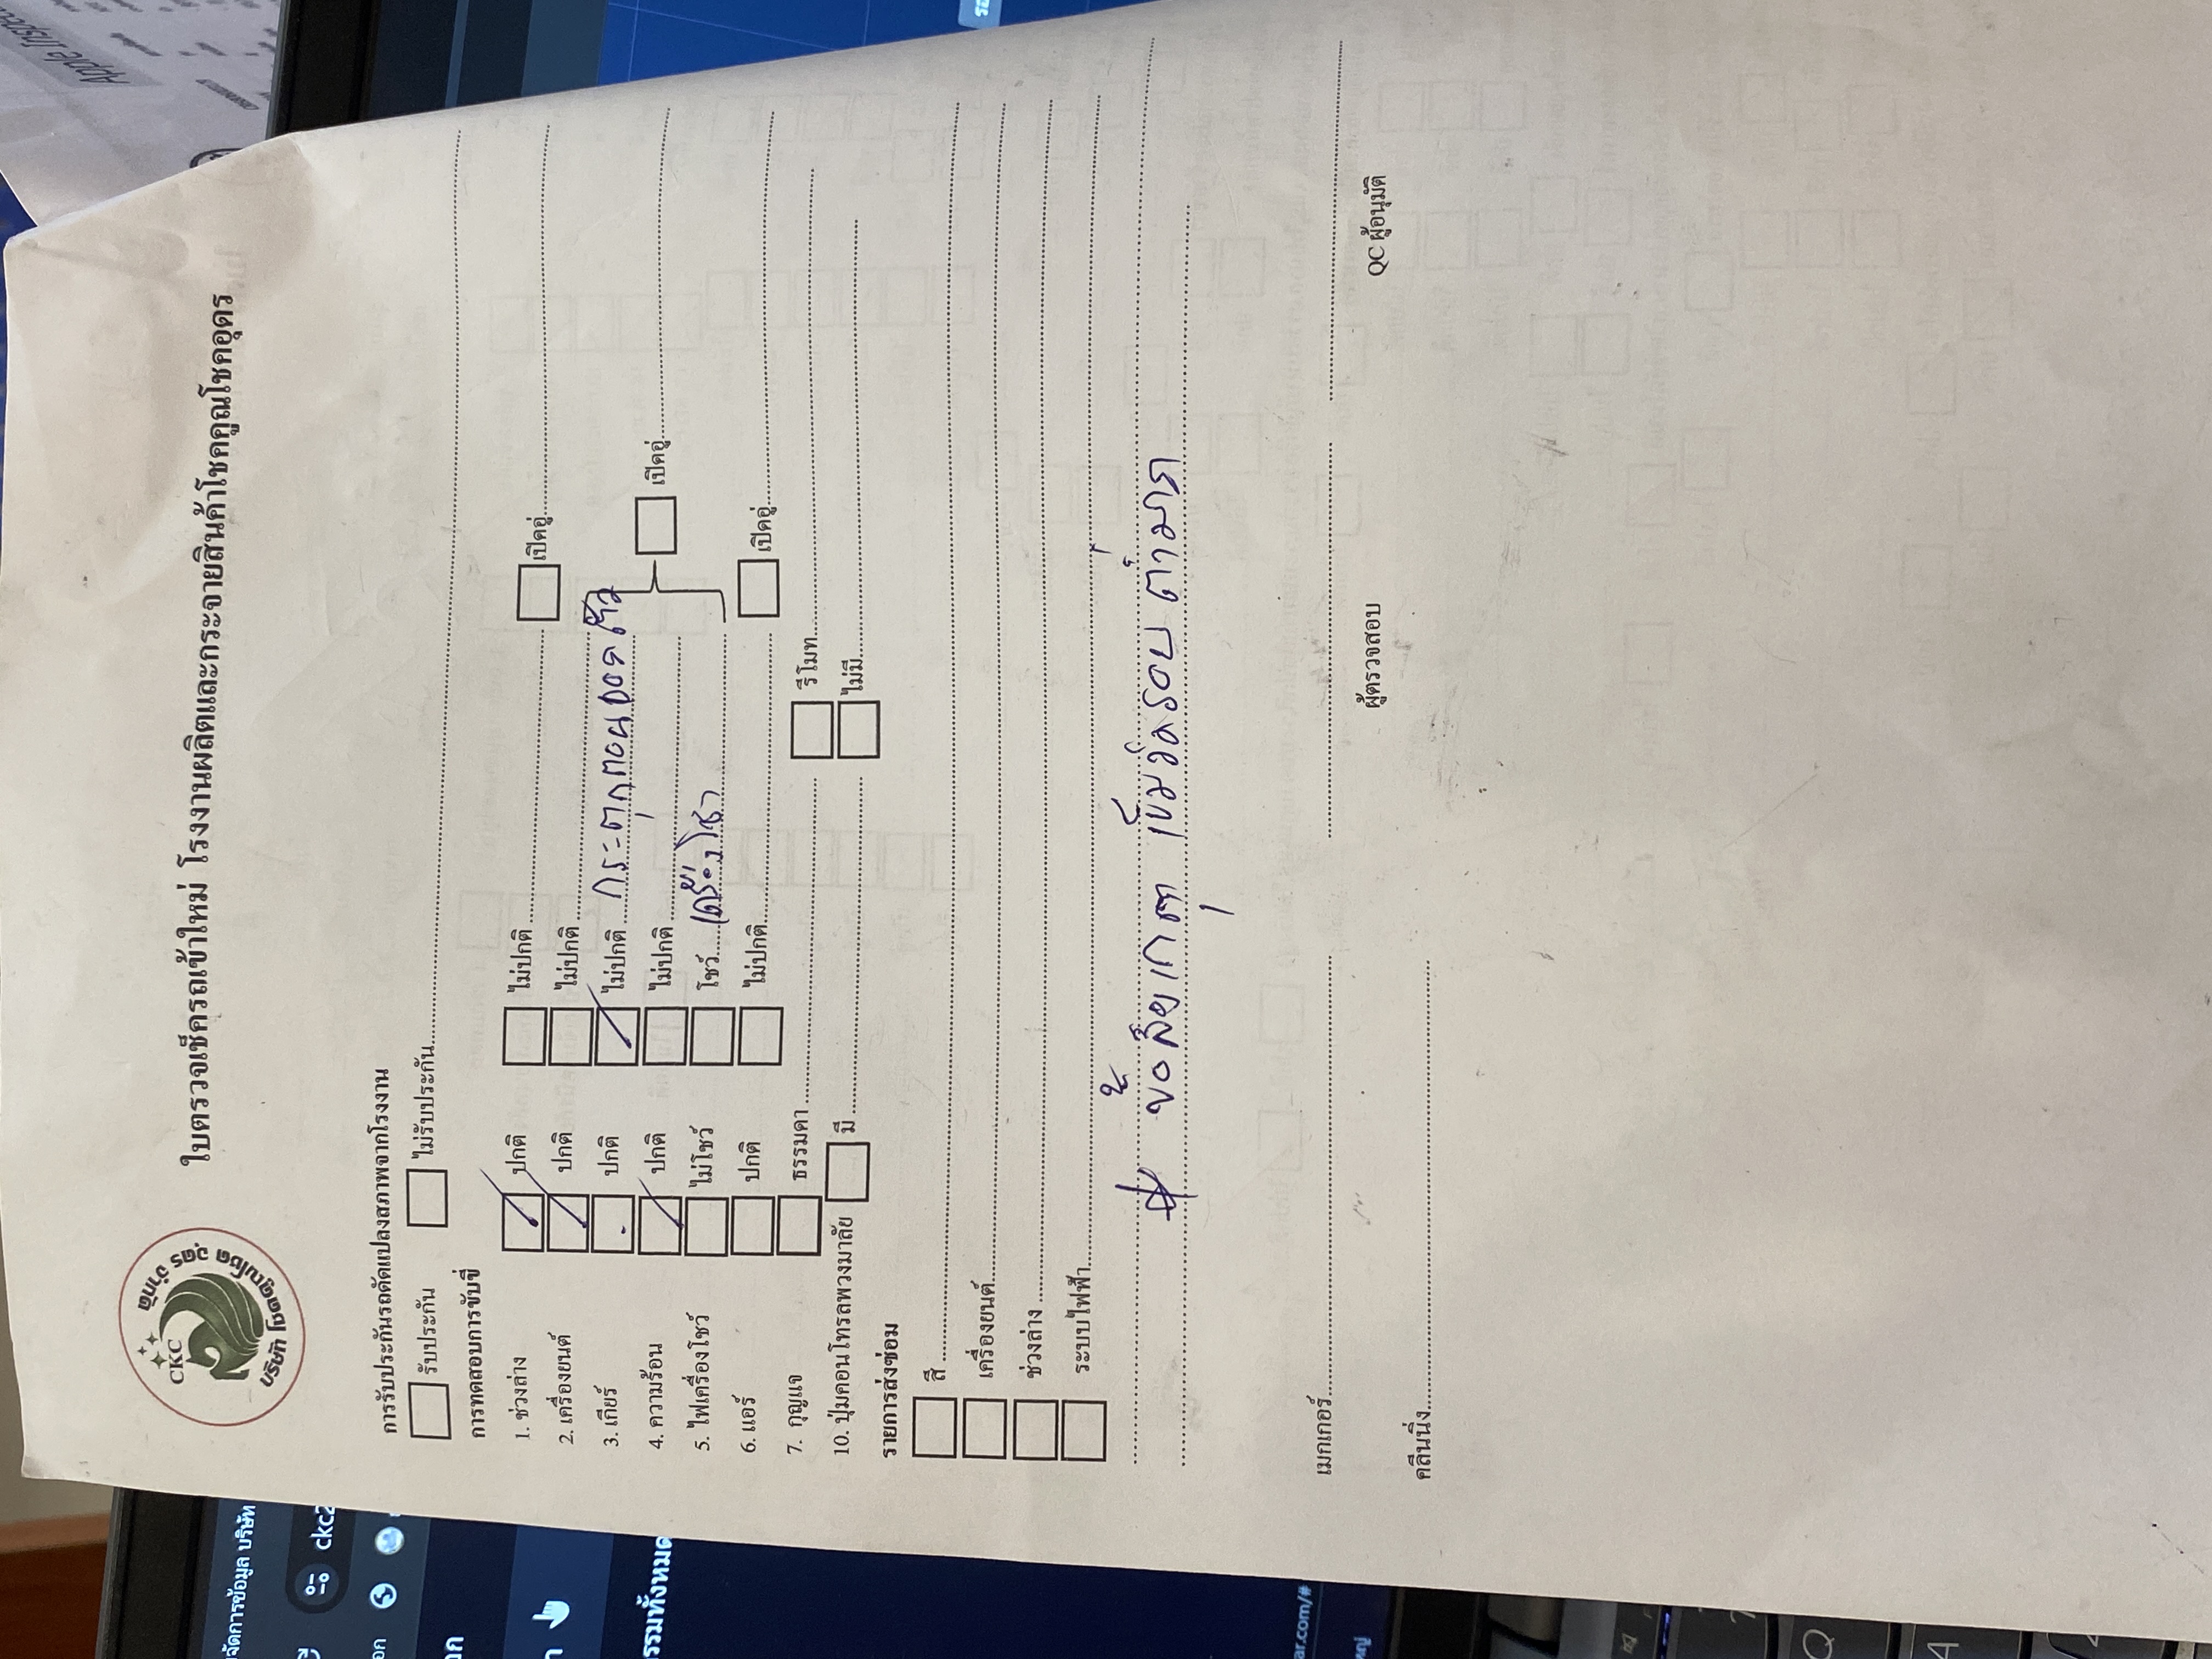 ใบตรวจเช็ครถเข้าใหม่ โรงงานผลิตและกระจายสินค้าโชคคูณโชคอุดร
CKC
บริษัท โชคคูณโชค อุดร จำกัด
การรับประกันรถดัดแปลงสภาพจากโรงงาน
รับประกัน ไม่รับประกัน
การทดสอบการขับขี่
1. ช่วงล่าง ปกติ ไม่ปกติ เปิดอู่
2. เครื่องยนต์ ปกติ ไม่ปกติ
3. เกียร์ ปกติ ไม่ปกติ กระตุกตอนออกตัว
4. ความร้อน ปกติ ไม่ปกติ เปิดอู่
5. ไฟเครื่องโชว์ ไม่โชว์ โชว์
6. แอร์ ปกติ ไม่ปกติ เปิดอู่
7. กุญแจ ธรรมดา รีโมท
10. ปุ่มคอนโทรลพวงมาลัย มี ไม่มี
รายการส่งซ่อม
สี
เครื่องยนต์
ช่วงล่าง
ระบบไฟฟ้า
เข็มวัดรอบ ต่ำมาก
เมกเกอร์ ผู้ตรวจสอบ QC ผู้อนุมัติ
คลีนนิ่ง
Apple Inspec
จัดการข้อมูล บริษัท
ckc2
รรมทั้งหมด
ar.com/#
Q
A